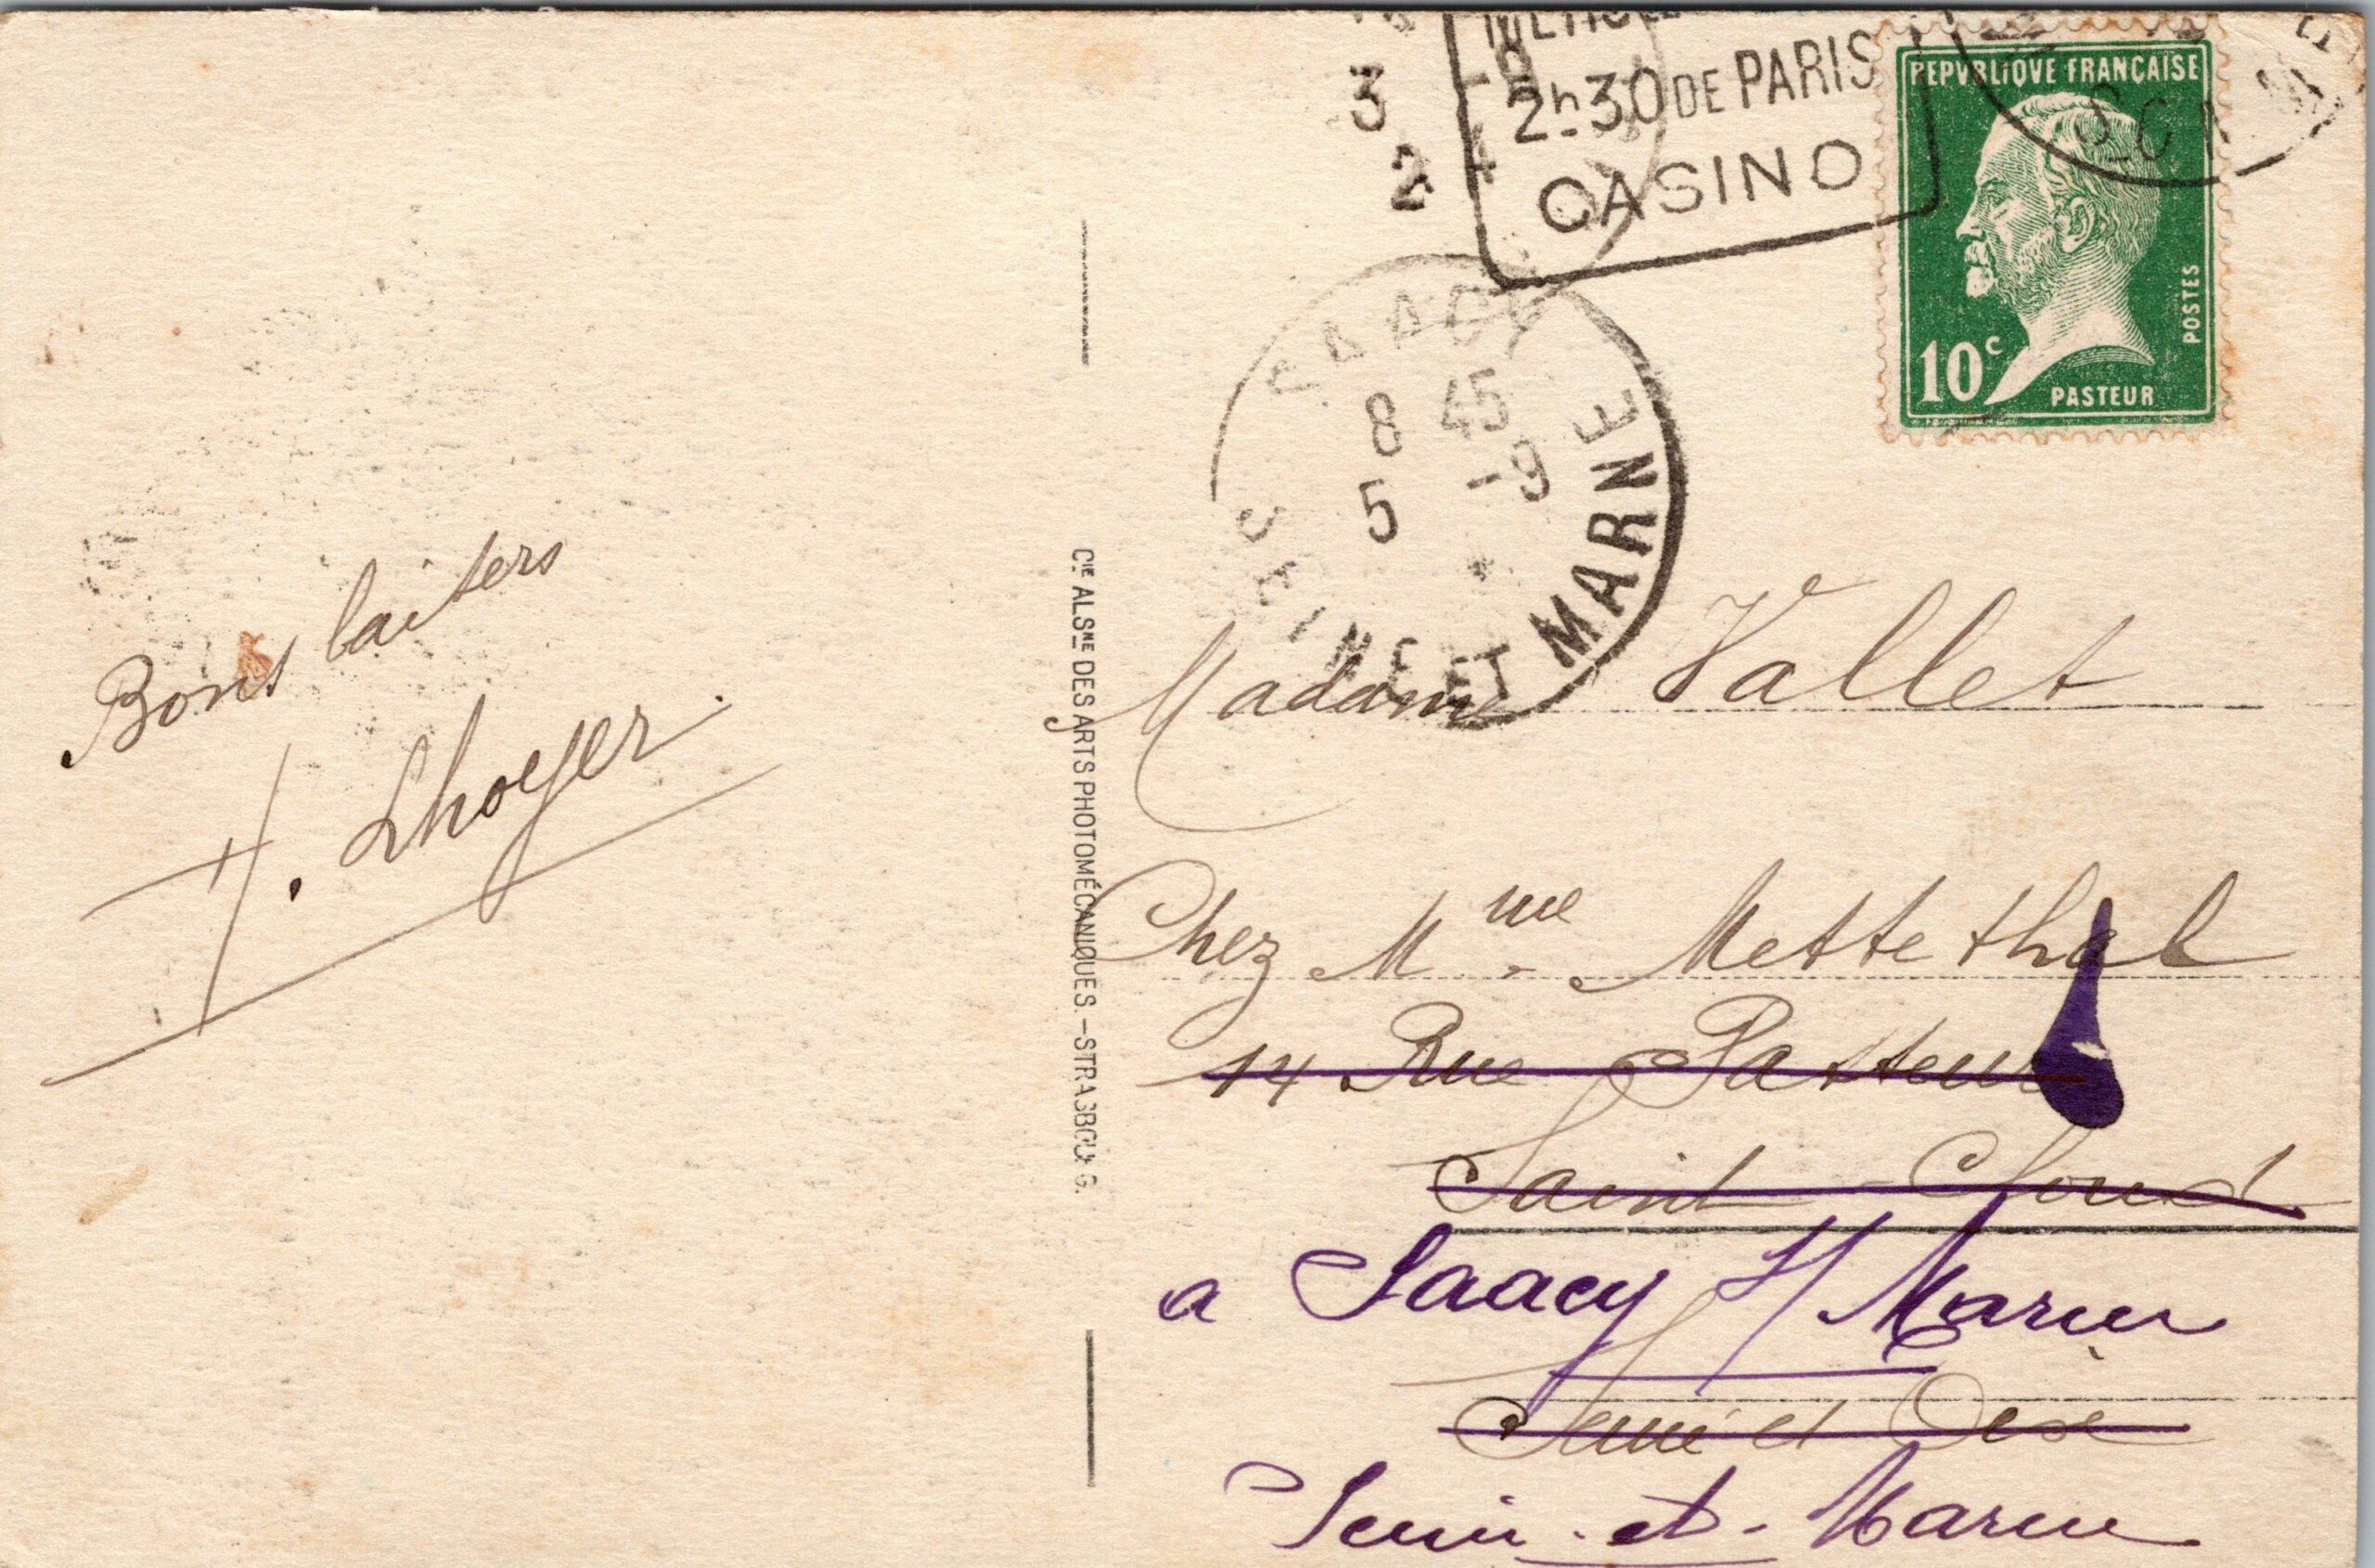 3
2
2h30 DE PARIS
CASINO
REPVBLIQVE FRANÇAISE
10c
PASTEUR
POSTES
SAACY
8 45
5 -9
SEINE ET MARNE
Bons baisers
H. Lhoyer.
CIE ALSNE DES ARTS PHOTOMÉCANIQUES. – STRASBOURG.
Madame Vallet
Chez Mme Mettethal
14 Rue Pasteur
Saint-Cloud
a Saacy s/ Marne
Seine et Oise
Seine-et-Marne